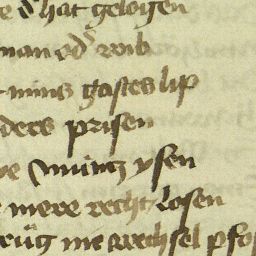 e d͛ hat gelogen
man od͛ wib
mins gastes lip
ders prisen
ve Smintz ysen
mere recht losen
trüg me wechsel pfo